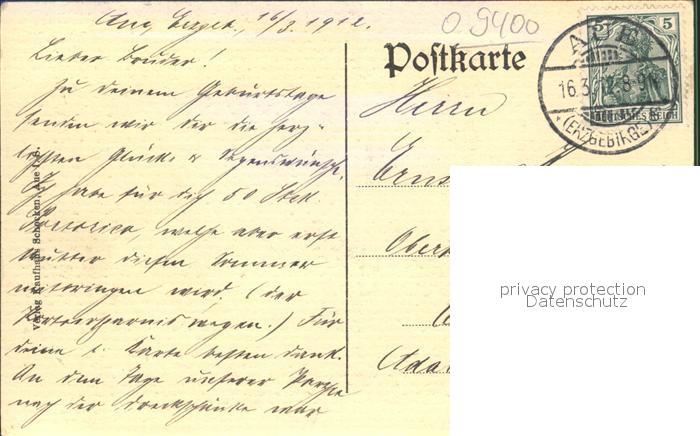 Aue, Erzgeb. 16/3. 1912.
O 9400
Lieber Bruder!
Zu deinem Geburtstage
senden wir dir die herz-
lichsten Glück- & Segenswünsche.
Ich habe für dich 50 Stck.
Portorico, welche aber erst
Mutter diesen Sommer
mitbringen wird. (der
Portoersparnis wegen.) Für
deine l. Karte besten Dank.
An dem Tage unserer Partie
nach der war
Verlag Kaufhaus Schocken, Aue i. S.
Postkarte
AUE
16.3.12. 8-9
* (ERZGEBIRGE)
5 5
DEUTSCHES REICH
Herrn
Ern
Ober
Ada
privacy protection
Datenschutz